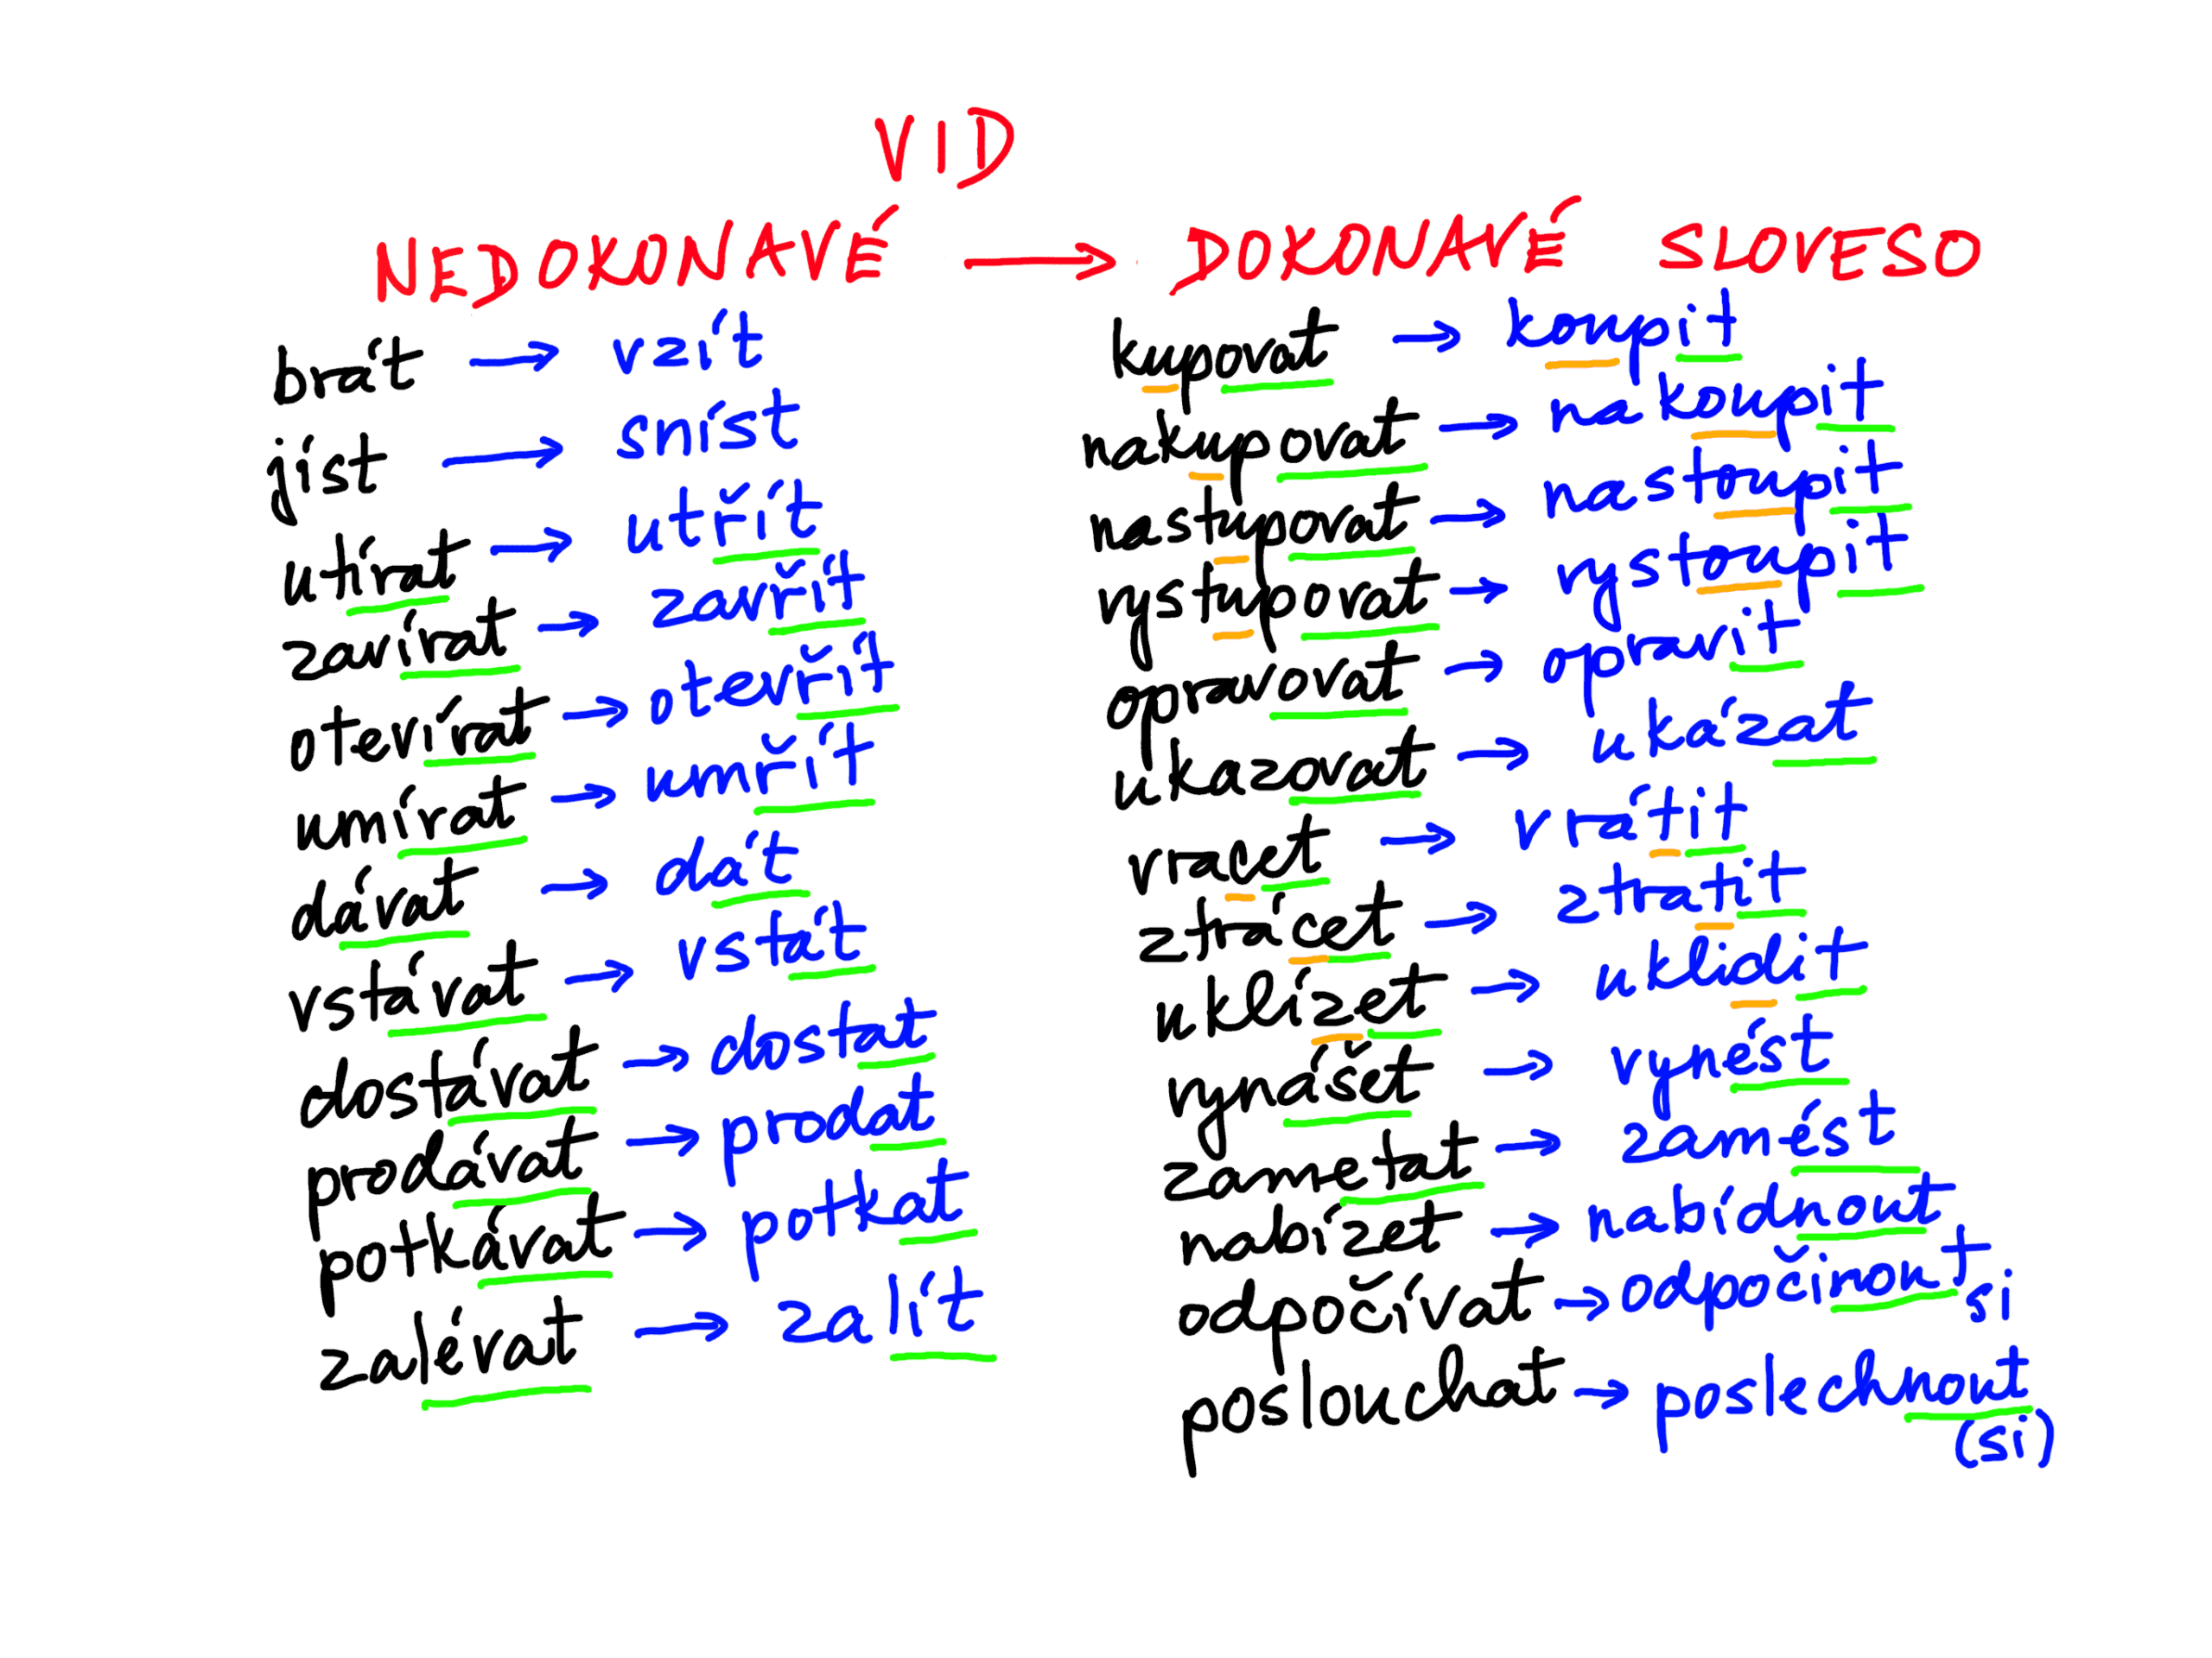 VID
NEDOKONAVÉ → DOKONAVÉ SLOVESO
brát → vzít
jíst → sníst
utírat → utřít
zavírat → zavřít
otevírat → otevřít
umírat → umřít
dávat → dát
vstávat → vstát
dostávat → dostat
prodávat → prodat
potkávat → potkat
zalévat → zalít
kupovat → koupit
nakupovat → nakoupit
nastupovat → nastoupit
vystupovat → vystoupit
opravovat → opravit
ukazovat → ukázat
vracet → vrátit
ztrácet → ztratit
uklízet → uklidit
vynášet → vynést
zametat → zamést
nabízet → nabídnout
odpočívat → odpočinout si
poslouchat → poslechnout
(si)